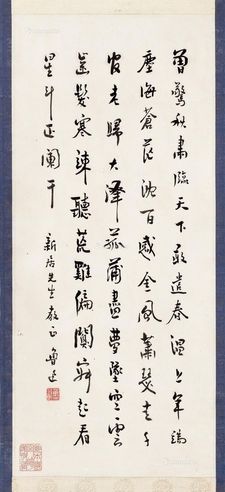 曾驚秋肅臨天下敢遣春溫上筆端
塵海蒼茫沈百感金風蕭瑟走千
官老歸大澤菰蒲盡夢墜空雲
齒髮寒竦聽荒雞偏闃寂起看
星斗正闌干
新居先生教正 魯迅